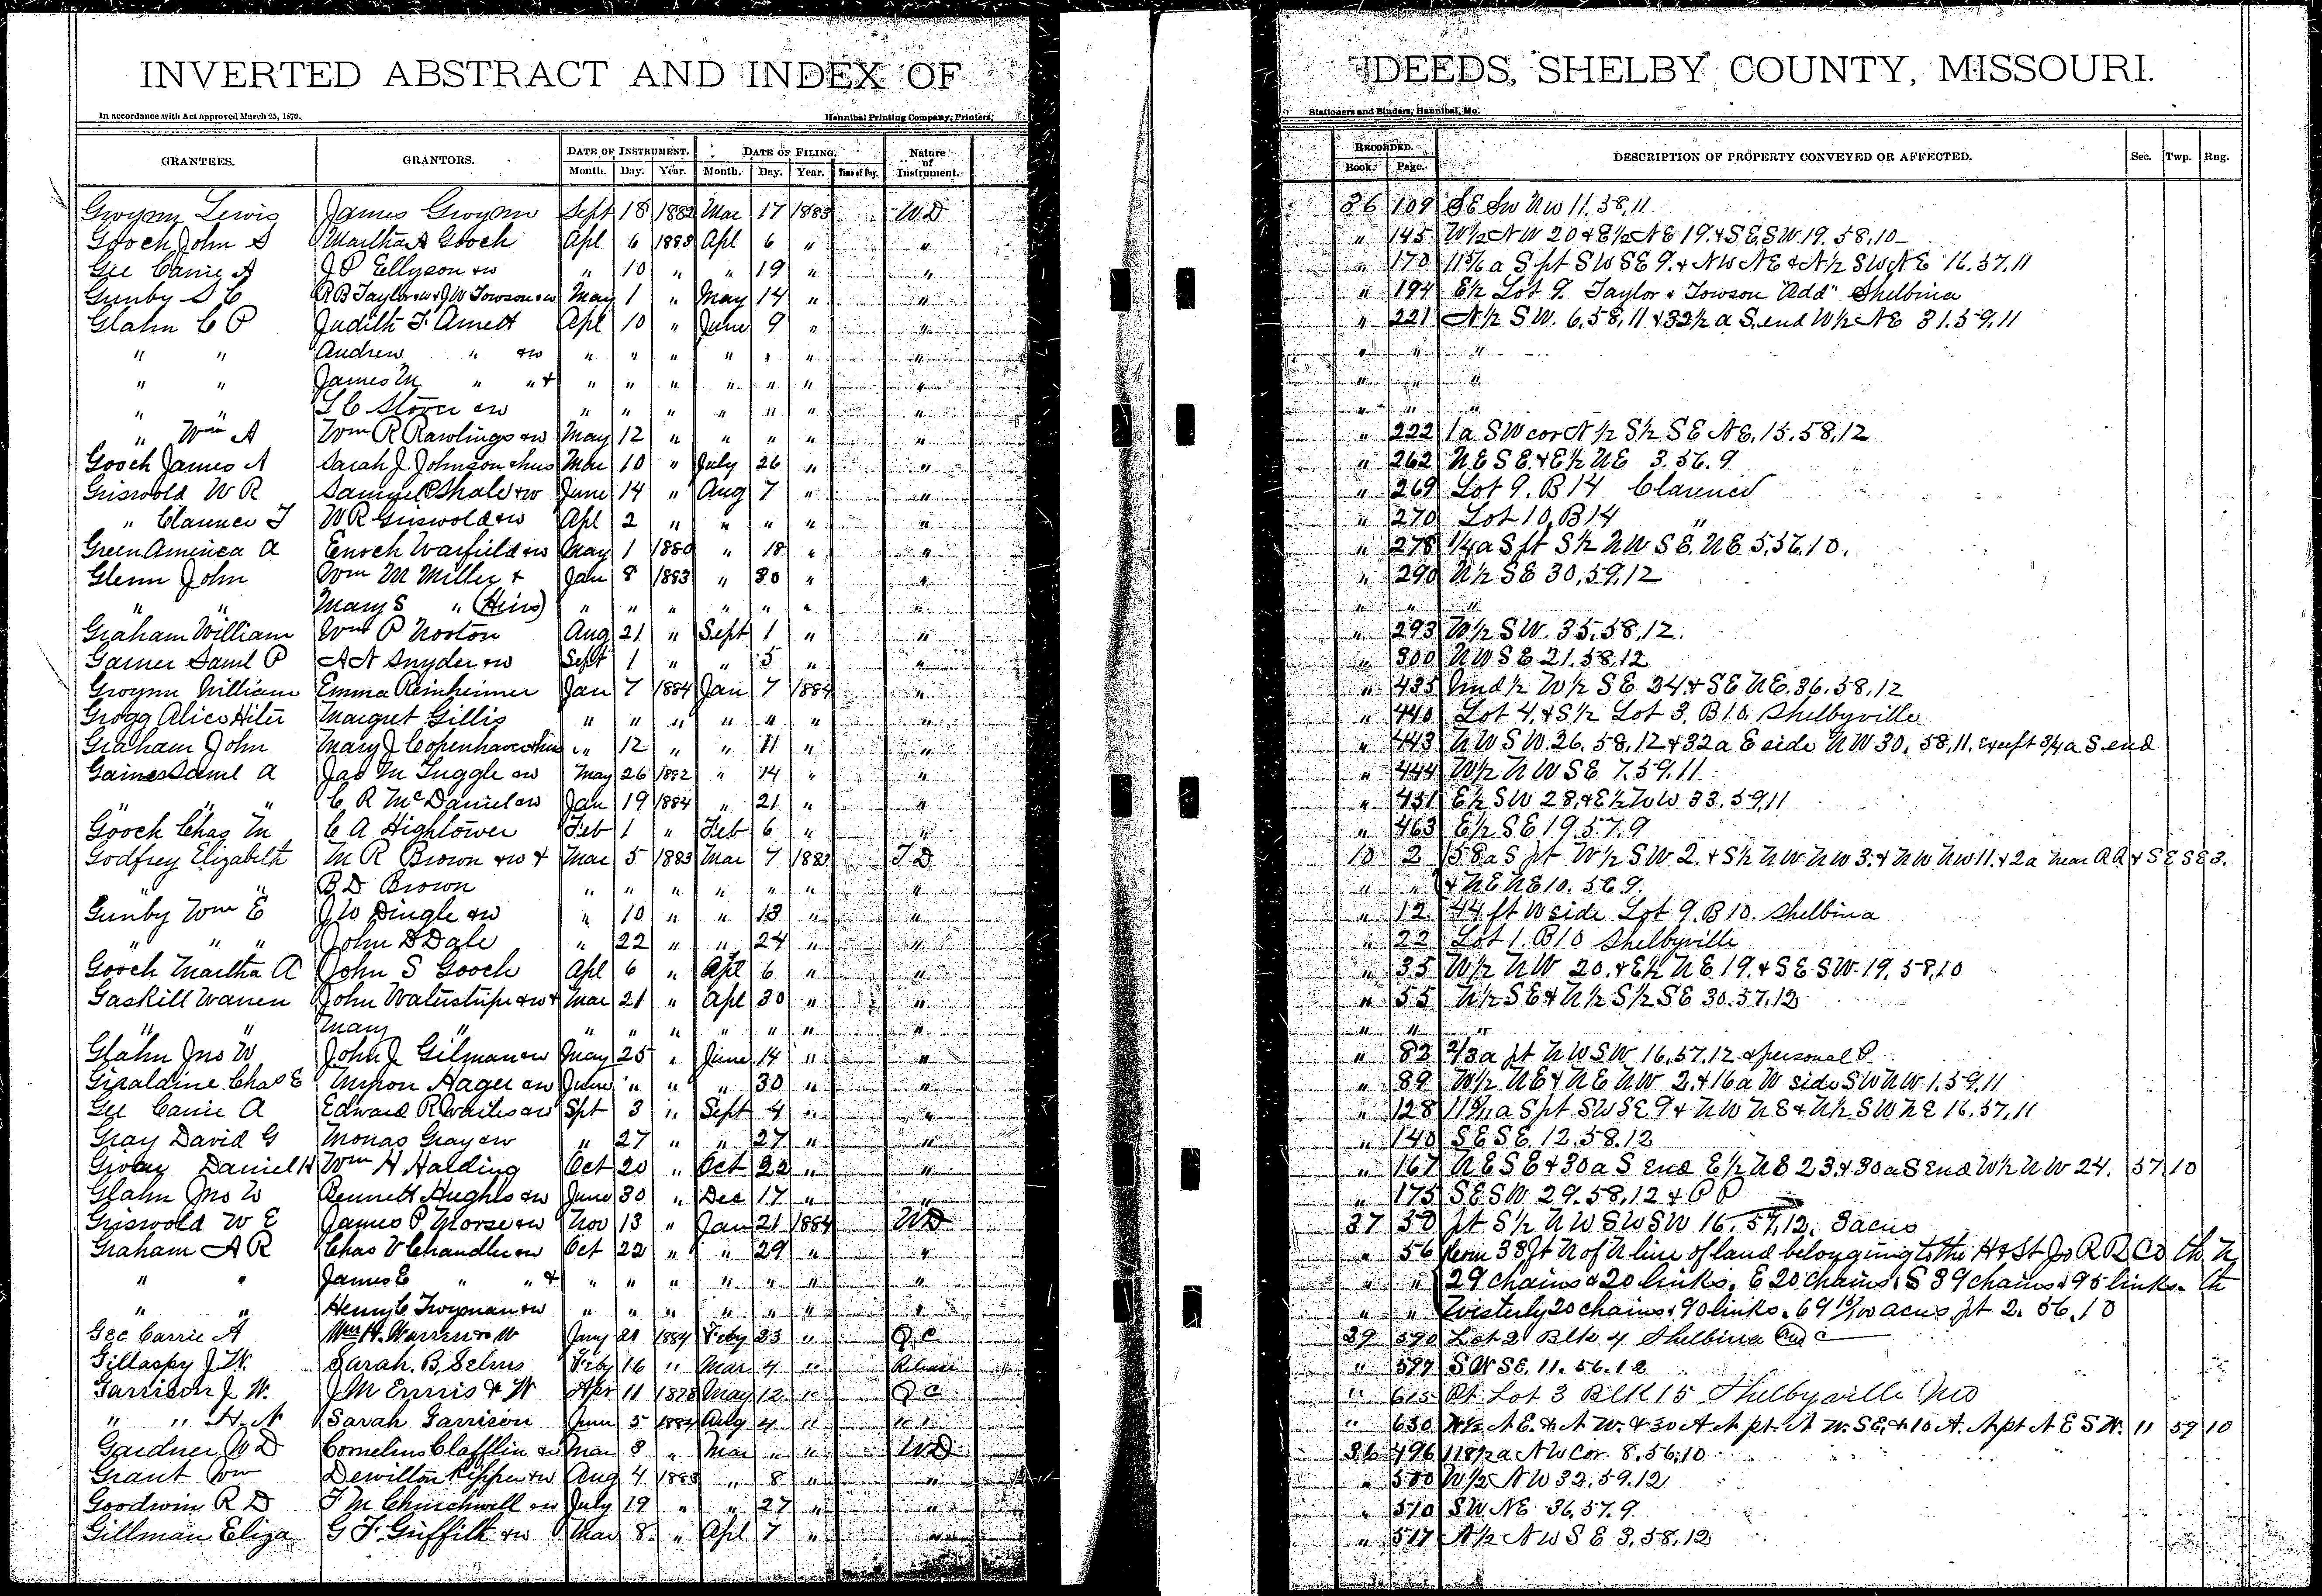 INVERTED ABSTRACT AND INDEX OF DEEDS, SHELBY COUNTY, MISSOURI.
In accordance with Act approved March 25, 1879. Hannibal Printing Company, Printers, Stationers and Binders, Hannibal, Mo.
GRANTEES. GRANTORS. DATE OF INSTRUMENT. DATE OF FILING. Nature of Instrument. RECORDED. DESCRIPTION OF PROPERTY CONVEYED OR AFFECTED. Sec. Twp. Rng.
Month. Day. Year. Month. Day. Year. Time of Day. Book. Page.
Gwynn Lewis James Gwynn Sept 18 1882 Mar 17 1883 WD 36 109 SE SW NW 11.58.11
Gooch John S Martha A Gooch Apl 6 1883 Apl 6 " " " 145 W½ NW 20 & E½ NE 19. & SE SW. 19. 58,10
Gee Carrie A J P Ellyson & w " 10 " " 19 " " " 170 11 5/6 a S pt SW SE 9. & NW NE & N½ SW NE 16.57.11
Gunby S C R B Taylor & w & J W Towson & w May 1 " May 14 " " " 194 E½ Lot 9. Taylor & Towson "Add" Shelbina
Glahn C P Judith F. Arnett Apl 10 " June 9 " " " 221 N½ SW. 6,58,11 & 32½ a S. end W½ NE 31.59,11
" " Andrew " & w " " " " " " " " " "
" " James M " " & " " " " " " " " " "
" " L C Stover & w " " " " " " " " " "
" Wm A Wm R Rawlings & w May 12 " " " " " " 222 1 a SW cor N½ S½ SE NE, 15.58,12
Gooch James A Sarah J. Johnson & hus Mar 10 " July 26 " " " 262 NE SE. & E½ NE 3.56.9
Griswold W R Samuel P Shale & w June 14 " Aug 7 " " " 269 Lot 9. B 14 Clarence
" Clarence F W R Griswold & w Apl 2 " " " " " " 270 Lot 10, B 14 "
Green America A Enoch Warfield & w May 1 1880 " 18 " " " 278 ¼ a S pt S½ NW SE NE 5,56,10.
Glenn John Wm M Miller & Jan 8 1883 " 30 " " " 290 N½ SE 30,59,12
" " Mary S " (Heirs) " " " " " " " " " "
Graham William Wm P Norton Aug 21 " Sept 1 " " " 293 W½ SW. 35,58,12.
Garner Saml P A N Snyder & w Sept 1 " " 5 " " " 300 NW SE 21.58,12
Gwynn William Emma Reinheimer Jan 7 1884 Jan 7 1884 " " 435 Und ½ W½ SE 24. & SE NE. 36.58,12
Grogg Alice Hiter Margret Gillis " " " " " " " " 440 Lot 4. & S½ Lot 3. B 10. Shelbyville
Graham John Mary J. Copenhaver & hus " 12 " " 11 " " " 443 NW SW 26. 58,12 & 32 a E side NW 30. 58,11. except 3/4 a S. end
Gaines Saml A Jas M Tuggle & w May 26 1882 " 14 " " " 444 W½ NW SE 7.59.11
" " " C R McDaniel & w Jan 19 1884 " 21 " " " 451 E½ SW 28, & E½ NW 33.59,11
Gooch Chas M C A Hightower Feb 1 " Feb 6 " " " 463 E½ SE 19.57.9
Godfrey Elizabeth M R Brown & w & Mar 5 1883 Mar 7 1883 TD 10 2 158 a S pt W½ SW 2. & S½ NW NW 3. & NW NW 11. & 2 a near RR & SE SE 3.
" " B D Brown " " " " " " " " " & NE NE 10. 56 9.
Gunby Wm E J W Dingle & w " 10 " " 13 " " " 12 44 ft W side Lot 9. B 10. Shelbina
" " " John D Dale " 22 " " 24 " " " 22 Lot 1. B 10 Shelbyville
Gooch Martha A John S Gooch Apl 6 " Apl 6 " " " 35 W½ NW 20. & E½ NE 19. & SE SW. 19. 58,10
Gaskill Warren John Waterstripe & w & Mar 21 " Apl 30 " " " 55 N½ SE & N½ S½ SE 30.57.12
" " Mary " " " " " " " " " " "
Glahn Jno W John J. Gilman & w May 25 " June 14 " " " 82 2/3 a pt NW SW 16,57,12 & personal P
Giraldine Chas E Myron Hager & w June " " " 30 " " " 89 W½ NE & NE NW 2. & 16 a W side SW NW 1.59,11
Gee Carrie A Edward R Waites & w Spt 3 " Sept 4 " " " 128 a S pt SW SE 9 & NW NE & N½ SW NE 16.57,11
Gray David G Monas Gray & w " 27 " " 27 " " " 140 SE SE. 12.58.12
Daniel H Wm H Harding Oct 20 " Oct 22 " " " 167 NE SE & 30 a S end E½ NE 23. & 30 a S end W½ NW 24. 57 10
Glahn Jno W Bennett Hughes & w June 30 " Dec 17 " " " 175 SE SW 29.58,12 & P P
Griswold W E James P Morse & w Nov 13 " Jan 21 1884 WD 37 30 pt S½ NW SW SW 16. 57,12, 3 acres
Graham A R Chas V Chandler & w Oct 22 " " 29 " " " 56 Com 38 ft N of N line of land belonging to the H & St Jo R R Co th N
" " James E " " & " " " " " " " " " 29 chains & 20 links, E 20 chains, S 39 chains & 95 links. th
" " Henry C Twyman & w " " " " " " " " " Westerly 20 chains & 90 links. 69 15/100 acres, pt 2. 56.10
Gee Carrie A Wm H. Warren & W Jany 21 1884 Feby 23 " Q C 29 590 Lot 2 Blk 4 Shelbina
Gillaspy J W. Sarah. B, Selms Feby 16 " Mar 4 " Release " 597 SW SE. 11.56.12
Garrison J. W. J M Ennis & W Apr 11 1878 May 12 " Q C " 615 Pt Lot 3 Blk 15 Shelbyville Mo
" " H. N Sarah Garrison June 5 1884 Aug 4 " " " " 630 N½ N E. & N W. & 30 A N pt. N W. SE, & 10 A. N pt N E SW. 11 59 10
Gardner W D Cornelius Clafflin & w Mar 3 " Mar " " WD 36 496 118½ a NW Cor 8,56,10
Grant Wm Dewitton & w Aug 4 1883 " 8 " " " 500 W½ NW 32.59.12
Goodwin R D F M Churchwell & w July 19 " " 27 " " " 510 SW NE 36,57.9
Gillman Eliza G F. Griffith & w Mar 8 " Apl 7 " " " 517 N½ NW SE 3,58,12